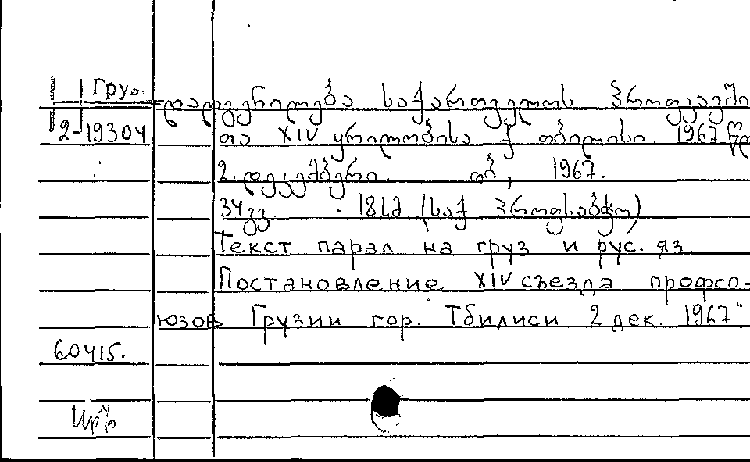 Груз.
დადგენილება საქართველოს პროფკავშირ
2-19304
თა XIV ყრილობისა ქ. თბილისი 1967 წლ
2 დეკემბერი. თბ., 1967.
34 გვ. 18სმ (საქ პროფსაბჭო)
Текст парал на груз и рус. яз
Постановление XIV съезда профсо-
юзов Грузии гор. Тбилиси 2 дек. 1967
60415.